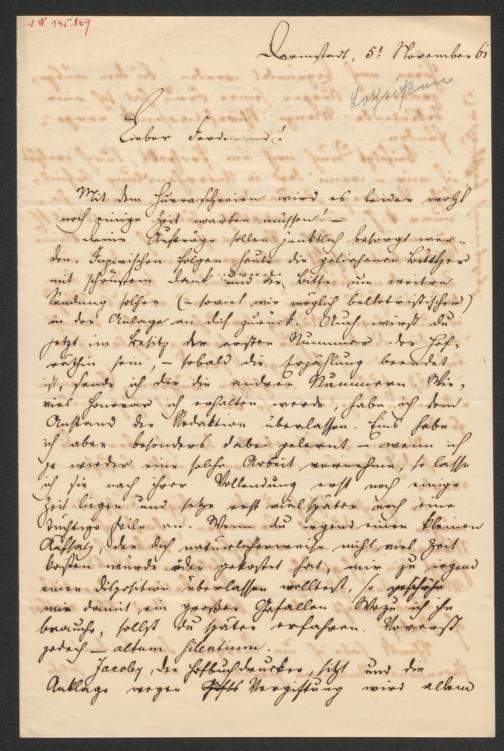 Darmstadt, 5t November 61
Lieber Ferdinand!
Mit dem Hurraschreien wird es leider wohl
noch einige Zeit warten müssen! —
Deine Aufträge sollen pünktlich besorgt wer-
den. Inzwischen folgen heute die geliehenen Bücher
mit schönstem Dank und der Bitte um weitere
Sendung solcher (– soviel wie möglich belletristischer)
in der Anlage an dich zurück. Auch wirst du
jetzt im Besitz der ersten Nummer der
sein, – sobald die Erzählung beendet
ist, sende ich dir die andren Nummern. Wie-
viel Honorar ich erhalten werde habe ich dem
Anstand der Redaktion überlassen. Eins habe
ich aber besonders dabei gelernt – wenn ich
je wieder eine solche Arbeit vornehme, so lasse
ich sie nach ihrer Vollendung erst noch einige
Zeit liegen und setze erst viel später noch eine
tüchtige Feile an. Wenn du irgend einen kleinen
Aufsatz, der dich natürlicherweise nicht viel Zeit
kosten würde oder gekostet hat, mir zu irgend
einer Disposition überlassen wolltest, so geschähe
mir damit ein großer Gefallen. Wozu ich ihn
brauche, sollst du später erfahren. Vorerst
jedoch – altum silentium.
Jacoby, der Hofbuchdrucker, sitzt und die
Anklage wegen Vergiftung wird allem